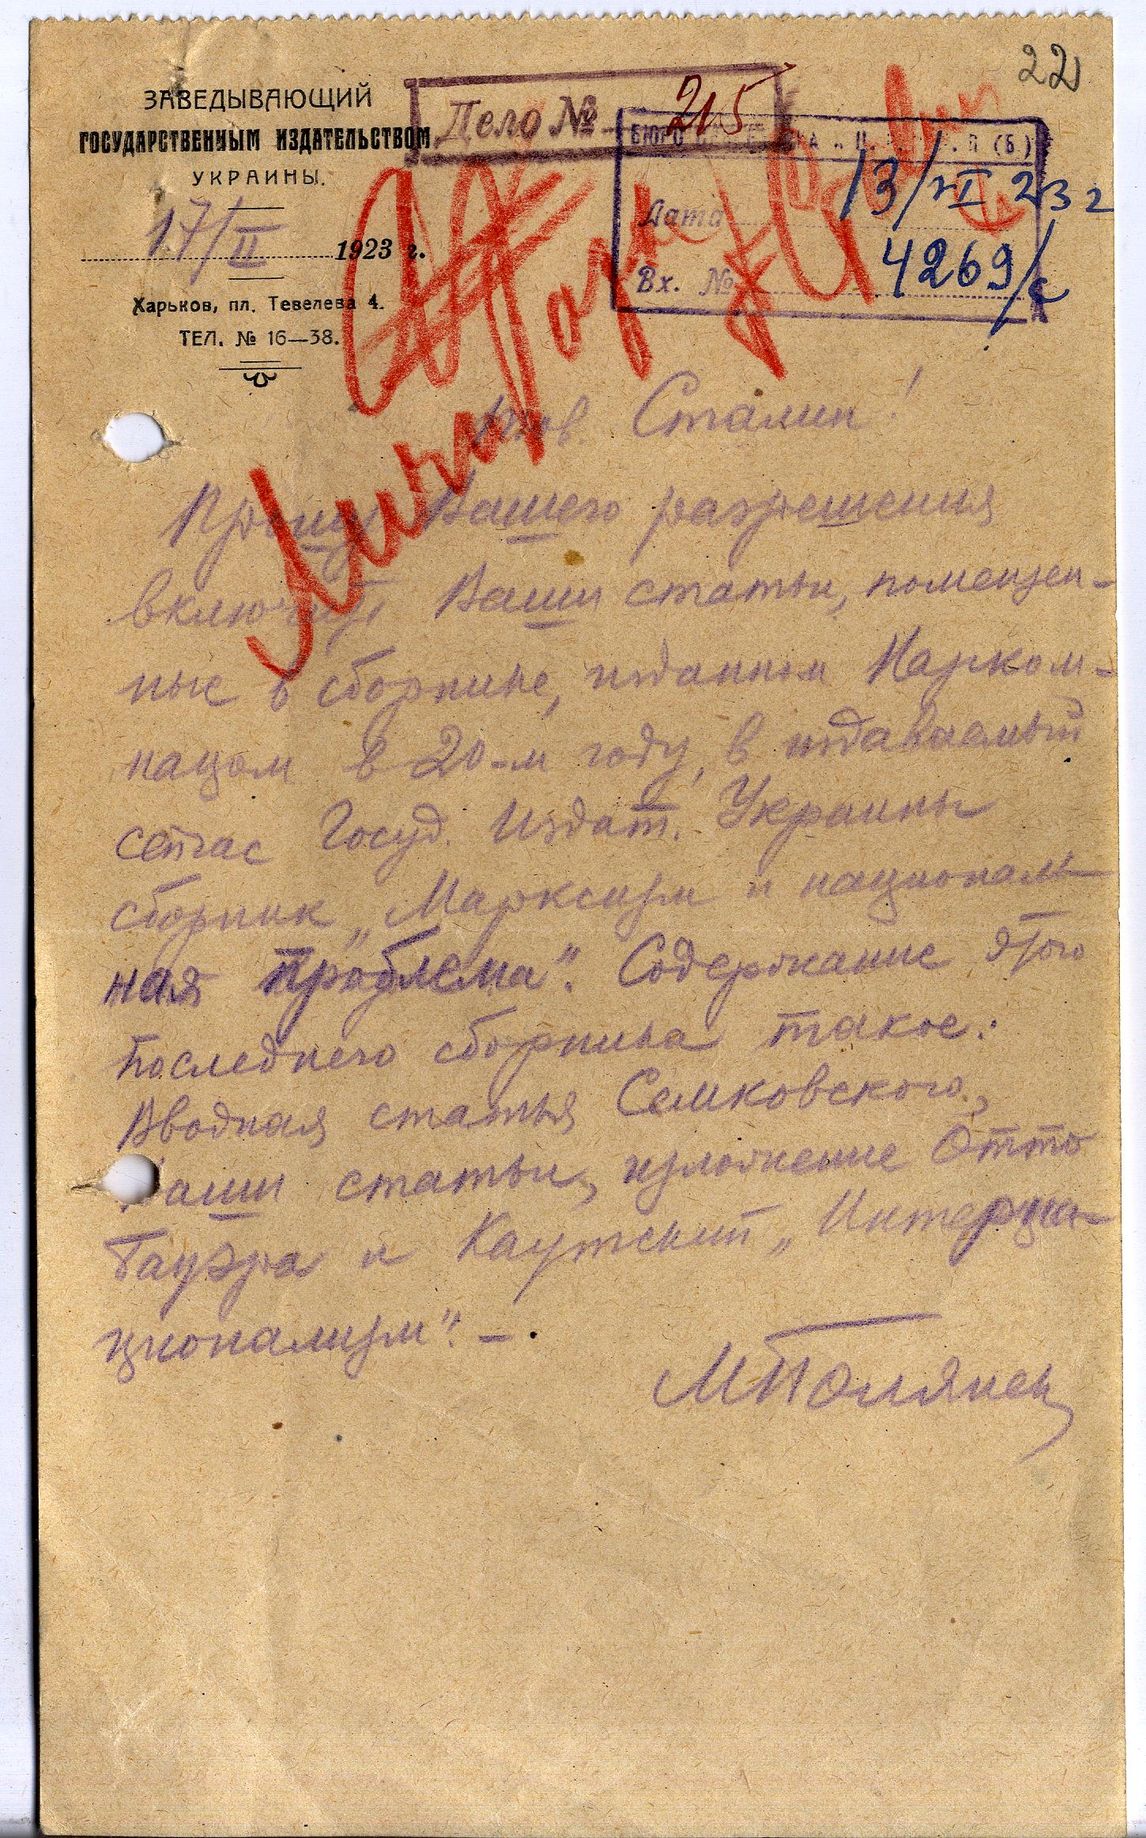 22
ЗАВЕДЫВАЮЩИЙ
ГОСУДАРСТВЕННЫМ ИЗДАТЕЛЬСТВОМ
УКРАИНЫ.
17/II 1923 г.
Харьков, пл. Тевелева 4.
ТЕЛ. № 16—38.
Дело № 215
БЮРО П (Б)
Дата 13/VI 23 г
Вх. № 4269/с
Личн
Тов. Сталин!
Прошу Вашего разрешения
включить Ваши статьи, помещен-
ные в сборнике, изданном Нарком-
нацом в 20-м году, в издаваемый
сейчас Госуд. Издат. Украины
сборник „Марксизм и националь-
ная проблема". Содержание этого
последнего сборника такое:
Вводная статья Семковского,
Ваши статьи, изложение Отто
Бауэра и Каутский „Интерна-
ционализм". –